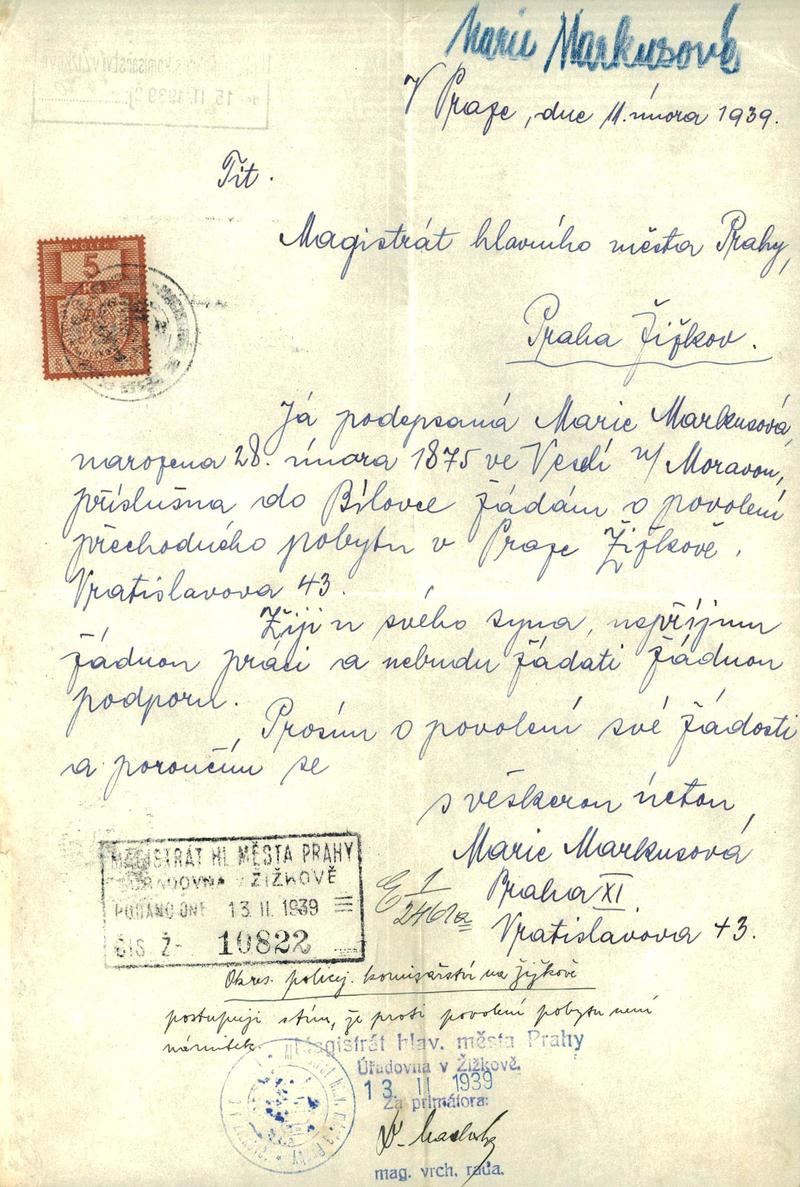 Marie Markusová
V Praze, dne 11. února 1939.
Tit.
Magistrát hlavního města Prahy,
KOLEK
5
Praha Žižkov.
Já podepsaná Marie Markusová,
narozena 28. února 1875 ve Veselí n/ Moravou,
příslušna do Bílovce žádám o povolení
přechodného pobytu v Praze Žižkově,
Vratislavova 43.
Žiji u svého syna, nepříjmu
žádnou práci a nebudu žádati žádnou
podporu.
Prosím o povolení své žádosti
a poroučím se
s veškerou úctou,
Marie Markusová
Praha XI
Vratislavova 43.
MAGISTRÁT HL. MĚSTA PRAHY
ÚŘADOVNA V ŽIŽKOVĚ
PODÁNO DNE 13. II. 1939
ČÍS. Ž- 10822
E 1/2461a
Okres. policej. komisařství na Žižkově
postupuji s tím, že proti povolení pobytu není
námitek.
Magistrát hlav. města Prahy
Úřadovna v Žižkově.
13. II. 1939
Za primátora:
mag. vrch. rada.